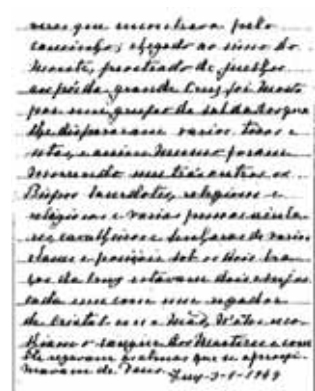 mas que encontrava pelo
caminho; chegado ao cimo do
monte, prostrado de juelhos
aos pés da grande Cruz foi morto
por um grupo de soldados que
lhe dispararam varios tiros e
setas, e assim mesmo foram
morrendo uns trás outros os
Bispos Sacerdotes, religiosos e
religiosas e varias pessoas
cavalheiros e senhoras de varias
classes e posições. Sob os dois bra
ços da Cruz estavam dois Anjos
cada um com um regador
de cristal em a mão, n'êles reco
lhiam o sangue dos Martires e com
êle regavam as almas que se aproxi
mavam de Deus.
Tuy-3-1-1944